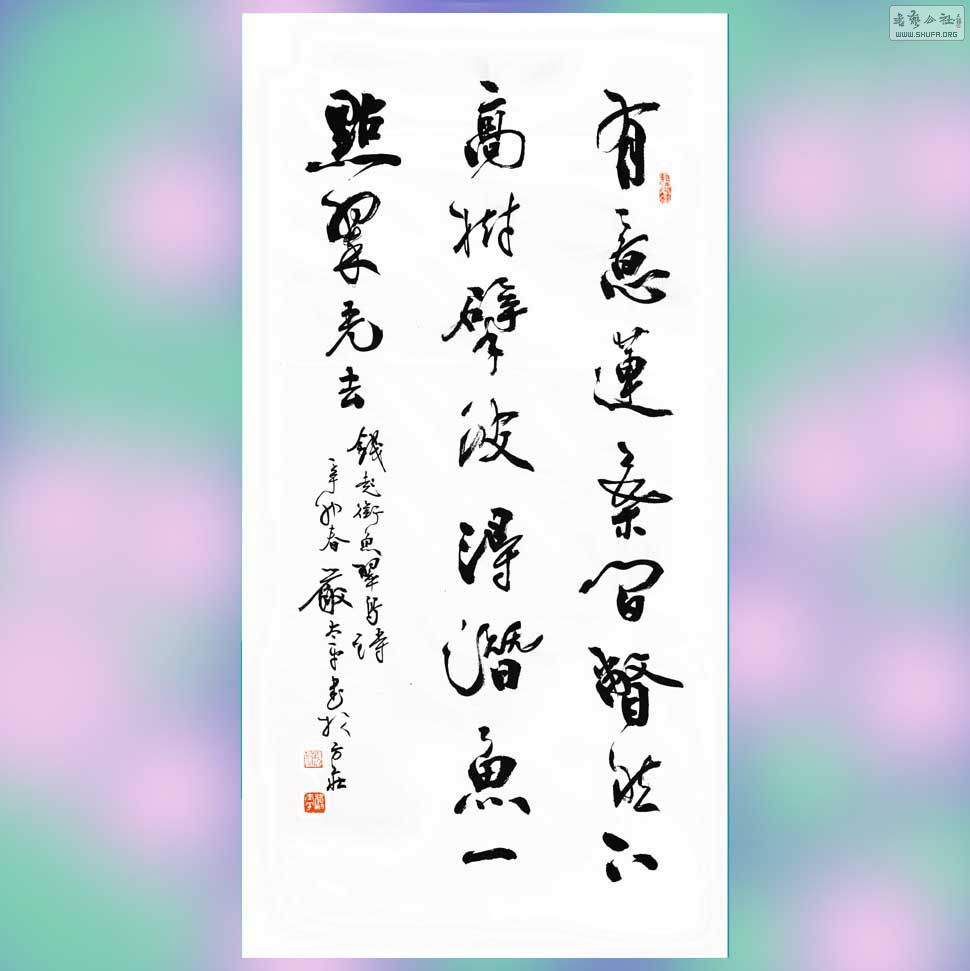 有意蓮叶間瞥然下
高樹擘波得潛魚一
點翠毛去
錢起銜魚翠鳥詩
辛卯春嚴太平書於方莊
書藝公社
WWW.SHUFA.ORG